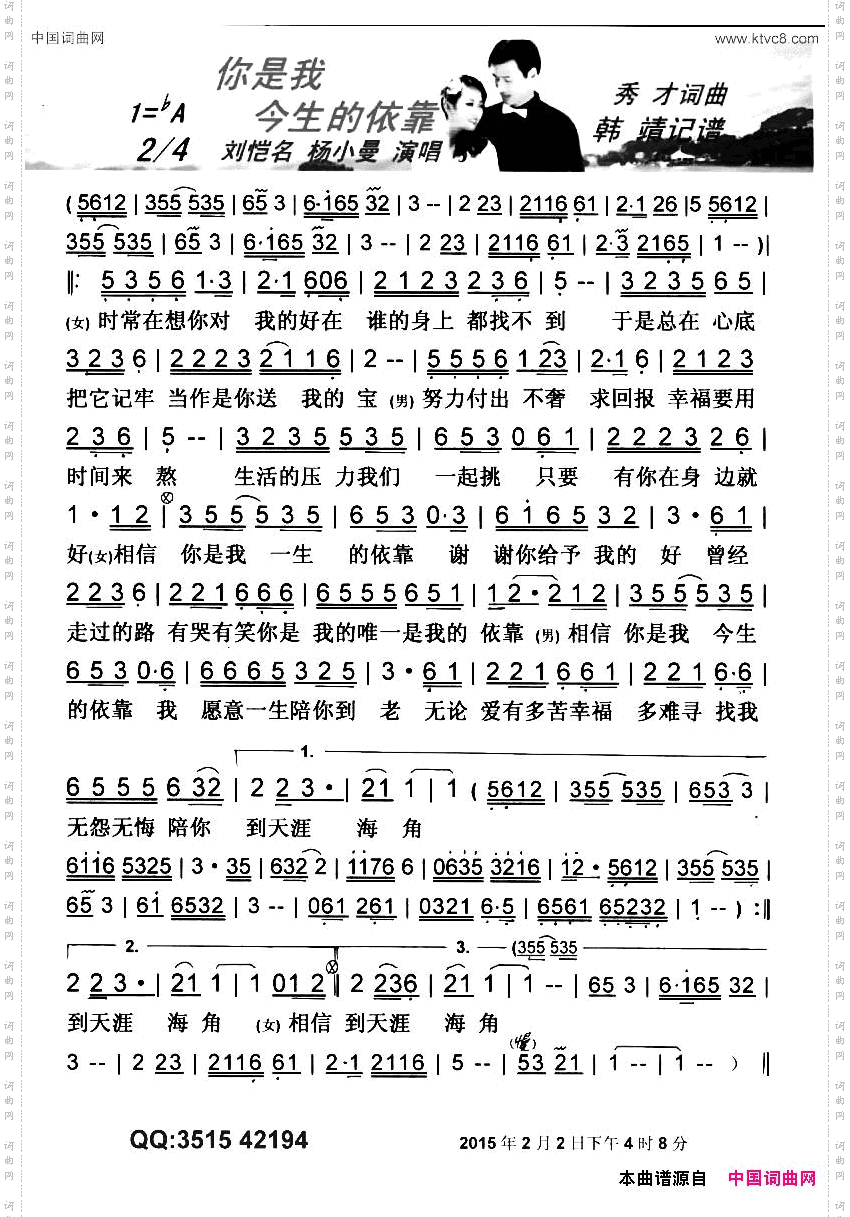 中国词曲网
www.ktvc8.com
你是我
今生的依靠
1=♭A
2/4
刘恺名 杨小曼 演唱
秀 才词曲
韩 靖记谱
( 5612 | 355 535 | 65 3 | 6·165 32 | 3 -- | 2 23 | 2116 61 | 2·1 26 | 5 5612 |
355 535 | 65 3 | 6·165 32 | 3 -- | 2 23 | 2116 61 | 2·3 2165 | 1 -- )|
‖: 5 3 5 6 1·3 | 2·1 606 | 2 1 2 3 2 3 6 | 5 -- | 3 2 3 5 6 5 |
(女) 时常在想你对 我的好在 谁的身上 都找不 到 于是总在 心底
3 2 3 6 | 2 2 2 3 2 1 1 6 | 2 -- | 5 5 5 6 1 23 | 2·1 6 | 2 1 2 3
把它记牢 当作是你送 我的 宝 (男) 努力付出 不奢 求回报 幸福要用
2 3 6 | 5 -- | 3 2 3 5 5 3 5 | 6 5 3 0 6 1 | 2 2 2 3 2 6 |
时间来 熬 生活的压 力我们 一起挑 只要 有你在身 边就
1 · 1 2 | 3 5 5 5 3 5 | 6 5 3 0·3 | 6 1 6 5 3 2 | 3 · 6 1 |
好(女)相信 你是我 一生 的依靠 谢 谢你给予 我的 好 曾经
2 2 3 6 | 2 2 1 6 6 6 | 6 5 5 5 6 5 1 | 1 2 · 2 1 2 | 3 5 5 5 3 5 |
走过的路 有哭有笑你是 我的唯一是我的 依靠 (男) 相信 你是我 今生
6 5 3 0·6 | 6 6 6 5 3 2 5 | 3 · 6 1 | 2 2 1 6 6 1 | 2 2 1 6·6 |
的依靠 我 愿意一生陪你到 老 无论 爱有多苦幸福 多难寻 找我
1.
6 5 5 5 6 32 | 2 2 3 · | 21 1 | 1 ( 5612 | 355 535 | 653 3 |
无怨无悔 陪你 到天涯 海 角
6116 5325 | 3 · 35 | 632 2 | 1176 6 | 0635 3216 | 12 · 5612 | 355 535 |
65 3 | 61 6532 | 3 -- | 061 261 | 0321 6·5 | 6561 65232 | 1 -- ) :‖
2. 3. (355 535
2 2 3 · | 21 1 | 1 01 2 ‖ 2 236 | 21 1 | 1 -- | 65 3 | 6·165 32 |
到天涯 海 角 (女) 相信 到天涯 海 角
(慢)
3 -- | 2 23 | 2116 61 | 2·1 2116 | 5 -- | 53 21 | 1 -- | 1 -- ) ‖
QQ:3515 42194
2015 年 2 月 2 日下午 4 时 8 分
本曲谱源自 中国词曲网